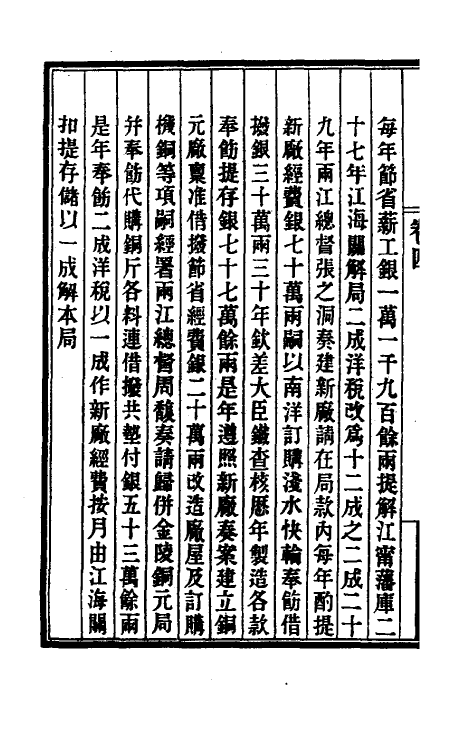 卷四
每年節省薪工銀一萬一千九百餘兩提解江甯藩庫二
十七年江海關解局二成洋稅改爲十二成之二成二十
九年兩江總督張之洞奏建新廠請在局款內每年酌提
新廠經費銀七十萬兩嗣以南洋訂購淺水快輪奉飭借
撥銀三十萬兩三十年欽差大臣鐵查核歷年製造各款
奉飭提存銀七十七萬餘兩是年遵照新廠奏案建立銅
元廠稟准借撥節省經費銀二十萬兩改造廠屋及訂購
機銅等項嗣經署兩江總督周馥奏請歸併金陵銅元局
幷奉飭代購銅斤各料連借撥共墊付銀五十三萬餘兩
是年奉飭二成洋稅以一成作新廠經費按月由江海關
扣提存儲以一成解本局